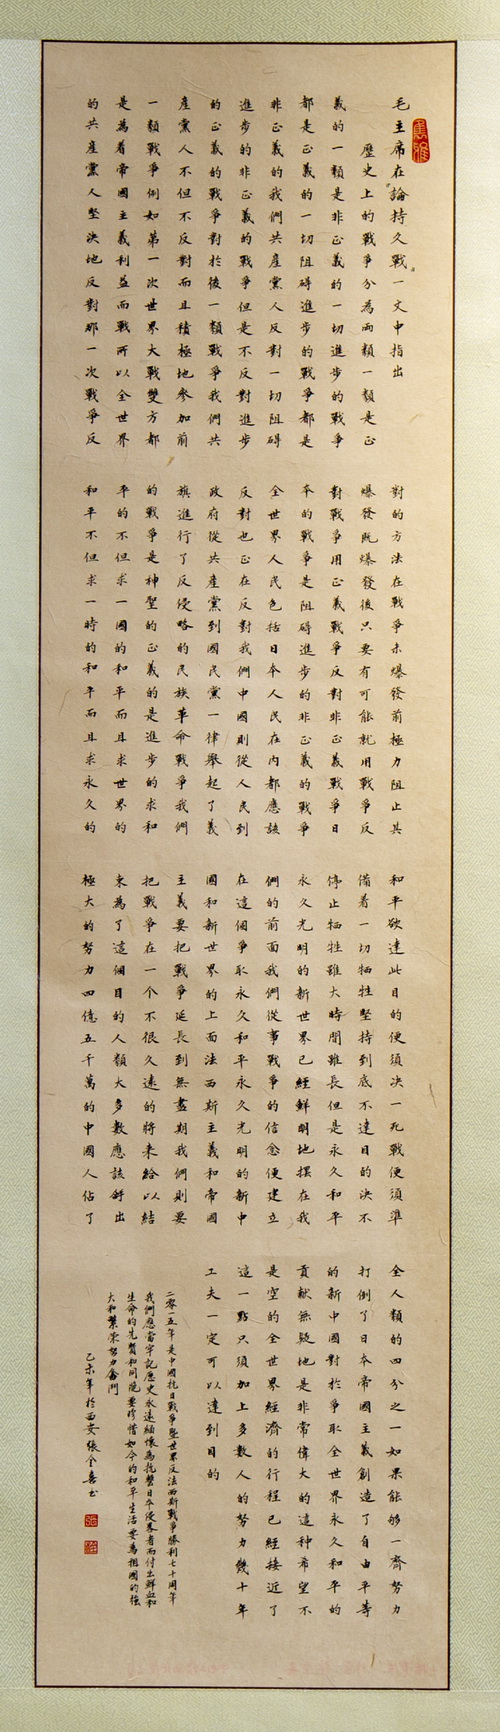 毛主席在"論持久戰"一文中指出
歷史上的戰爭分為兩類一類是正
義的一類是非正義的一切進步的戰爭
都是正義的一切阻碍進步的戰爭都是
非正義的我們共產黨人反對一切阻碍
進步的非正義的戰爭但是不反對進步
的正義的戰爭對於後一類戰爭我們共
產黨人不但不反對而且積極地參加前
一類戰爭例如第一次世界大戰雙方都
是為着帝國主義利益而戰所以全世界
的共產黨人堅決地反對那一次戰爭反
對的方法在戰爭未爆發前極力阻止其
爆發既爆發後只要有可能就用戰爭反
對戰爭用正義戰爭反對非正義戰爭日
本的戰爭是阻碍進步的非正義的戰爭
全世界人民包括日本人民在內都應該
反對也正在反對我們中國則從人民到
政府從共產黨到國民黨一律舉起了義
旗進行了反侵略的民族革命戰爭我們
的戰爭是神聖的正義的是進步的求和
平的不但求一國的和平而且求世界的
和平不但求一時的和平而且求永久的
和平欲達此目的便須決一死戰便須準
備着一切犧牲堅持到底不達目的決不
停止犧牲雖大時間雖長但是永久和平
永久光明的新世界已經鮮明地擺在我
們的前面我們從事戰爭的信念便建立
在這個爭取永久和平永久光明的新中
國和新世界的上面法西斯主義和帝國
主義要把戰爭延長到無盡期我們則要
把戰爭在一个不很久遠的將來給以結
束為了這個目的人類大多數應該舒出
極大的努力四億五千萬的中國人佔了
全人類的四分之一如果能够一齊努力
打倒了日本帝國主義創造了自由平等
的新中國對於爭取全世界永久和平的
貢獻無疑地是非常偉大的這种希望不
是空的全世界經濟的行程已經接近了
這一點只須加上多數人的努力幾十年
工夫一定可以達到目的
二零一五年是中國抗日戰爭暨世界反法西斯戰爭勝利七十周年
我們應當牢記歷史永遠緬懷為抗擊日本侵略者而付出鮮血和
生命的先賢和同胞要珍惜如今的和平生活要為祖國的強
大和繁榮努力奮鬥
乙未年於西安張全喜書